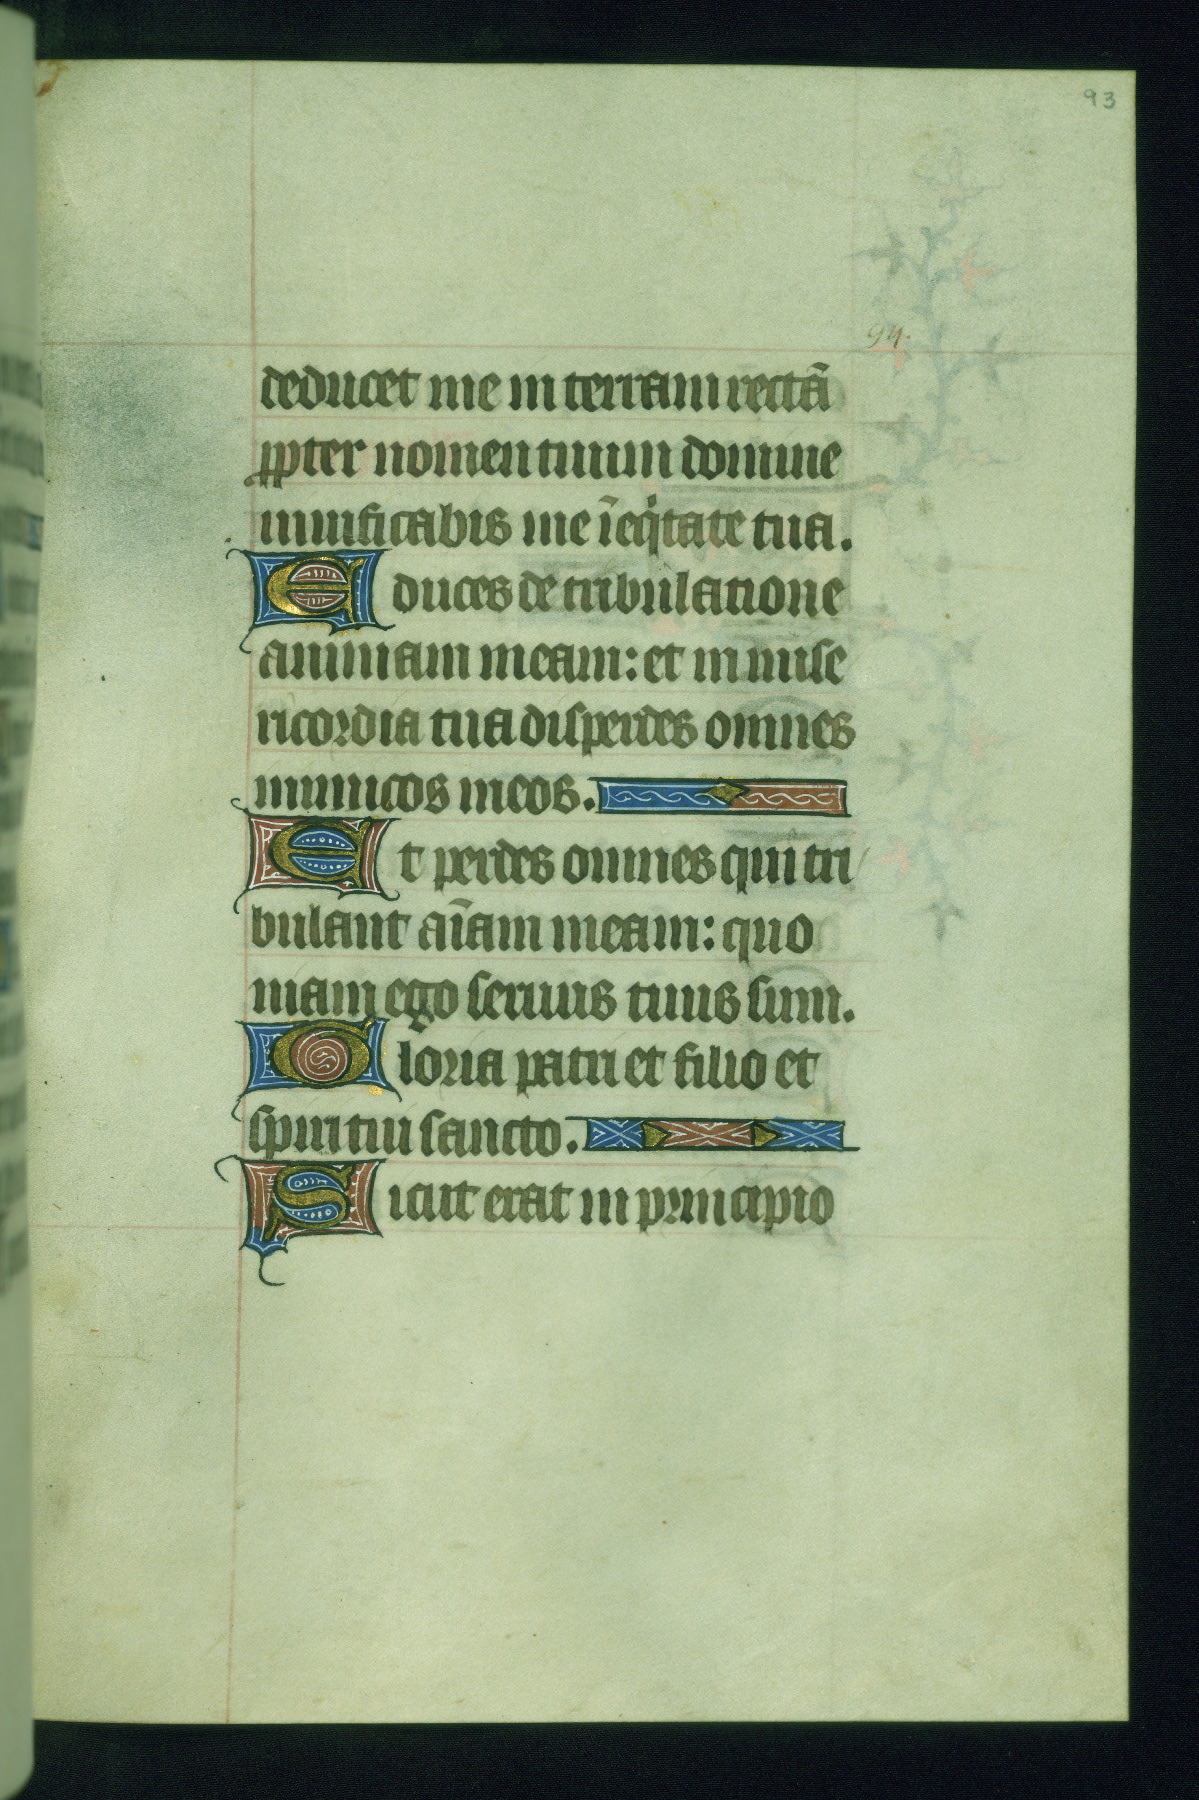 93
94.
deducet me in terram rectā
ꝓpter nomen tuum domine
uiuificabis me ī eq̇tate tua.
Educes de tribulatione
animam meam: et in mise
ricordia tua disperdes omnes
inimicos meos.
Et perdes omnes qui tri
bulant aīam meam: quo
niam ego seruus tuus sum.
Gloria patri et filio et
spiritui sancto.
Sicut erat in principio